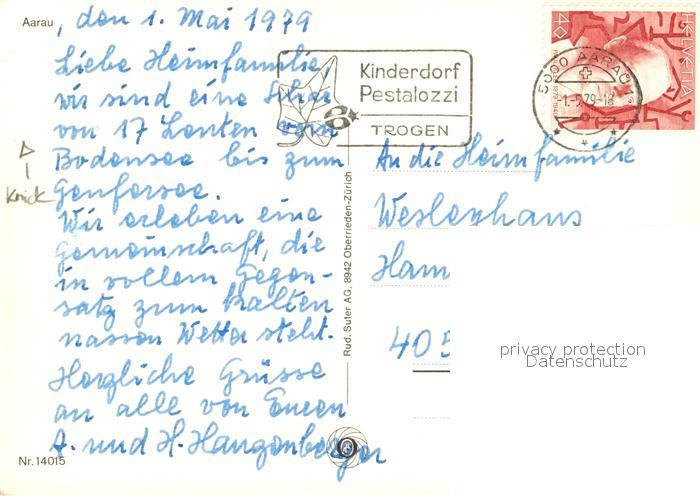 Aarau, den 1. Mai 1979
Liebe Heimfamilie,
wir sind eine Schar
von 17 Leuten vom
Bodensee bis zum
Genfersee.
Wir erleben eine
Gemeinschaft, die
in vollem Gegen-
satz zum kalten
nassen Wetter steht.
Herzliche Grüsse
an alle von Euren
A. und H. Hangenberger
Knick
Nr. 14015
Rud. Suter AG, 8942 Oberrieden-Zürich
Kinderdorf
Pestalozzi
TROGEN
40
HELVETIA
5000 AARAU
-1.-5.79-18
An die Heimfamilie
Wesleyhaus
Ham
405
privacy protection
Datenschutz